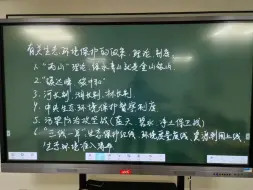 有关生态环境保护的政策、理论、制度
1. "两山"理论:绿水青山就是金山银山.
2. "碳达峰、碳中和"
3. 河长制、湖长制、林长制.
4. 中央生态环境保护督察制度
5. 污染防治攻坚战(蓝天、碧水、净土保卫战)
6. "三线一单":生态保护红线、环境质量底线、资源利用上线、
生态环境准入清单